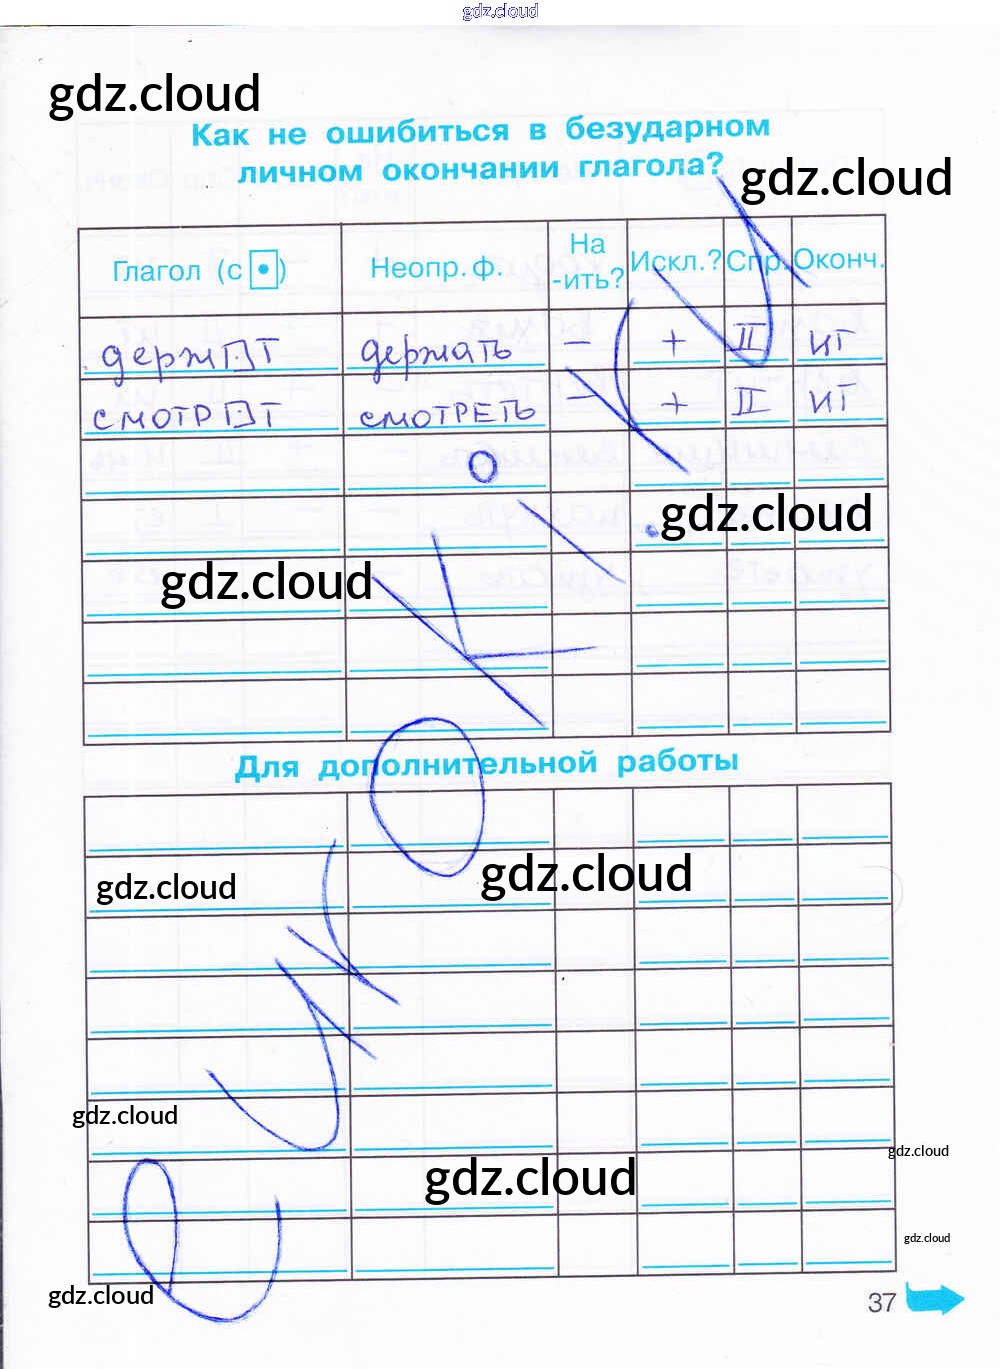 gdz.cloud
gdz.cloud
Как не ошибиться в безударном
личном окончании глагола?
gdz.cloud
Глагол (с •) Неопр. ф. На -ить? Искл.? Спр. Оконч.
держ□т держать – + II ит
смотр□т смотреть – + II ит
gdz.cloud
gdz.cloud
Для дополнительной работы
gdz.cloud
gdz.cloud
gdz.cloud
gdz.cloud
gdz.cloud
gdz.cloud
gdz.cloud
37